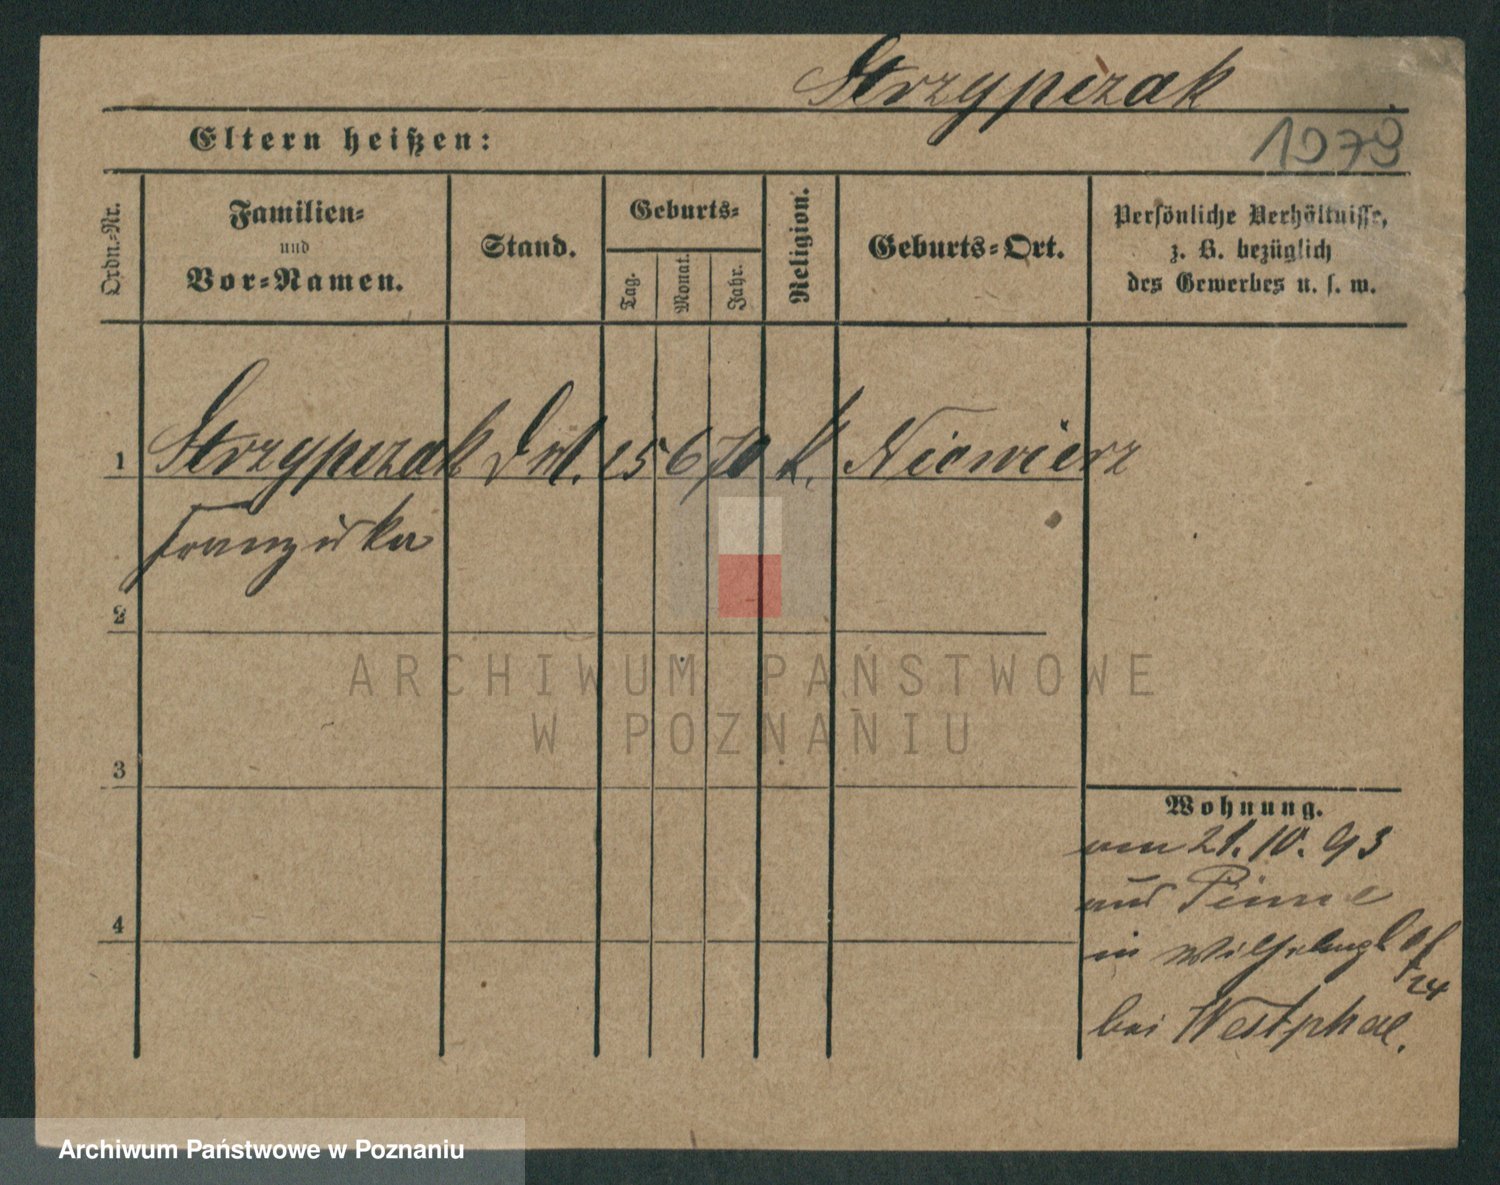 Strzypczak
Eltern heißen:
1979
Ordn.-Nr.
Familien-
und
Vor-Namen.
Stand.
Geburts-
Tag.
Monat.
Jahr.
Religion.
Geburts-Ort.
Persönliche Verhältnisse,
z. B. bezüglich
des Gewerbes u. s. w.
1 Strzypczak 15 6 70 k. Niewierz
Franziska
2
3
4
Wohnung.
am 21. 10. 93
aus Pinne
in
24
bei Westphal.
ARCHIWUM PAŃSTWOWE
W POZNANIU
Archiwum Państwowe w Poznaniu